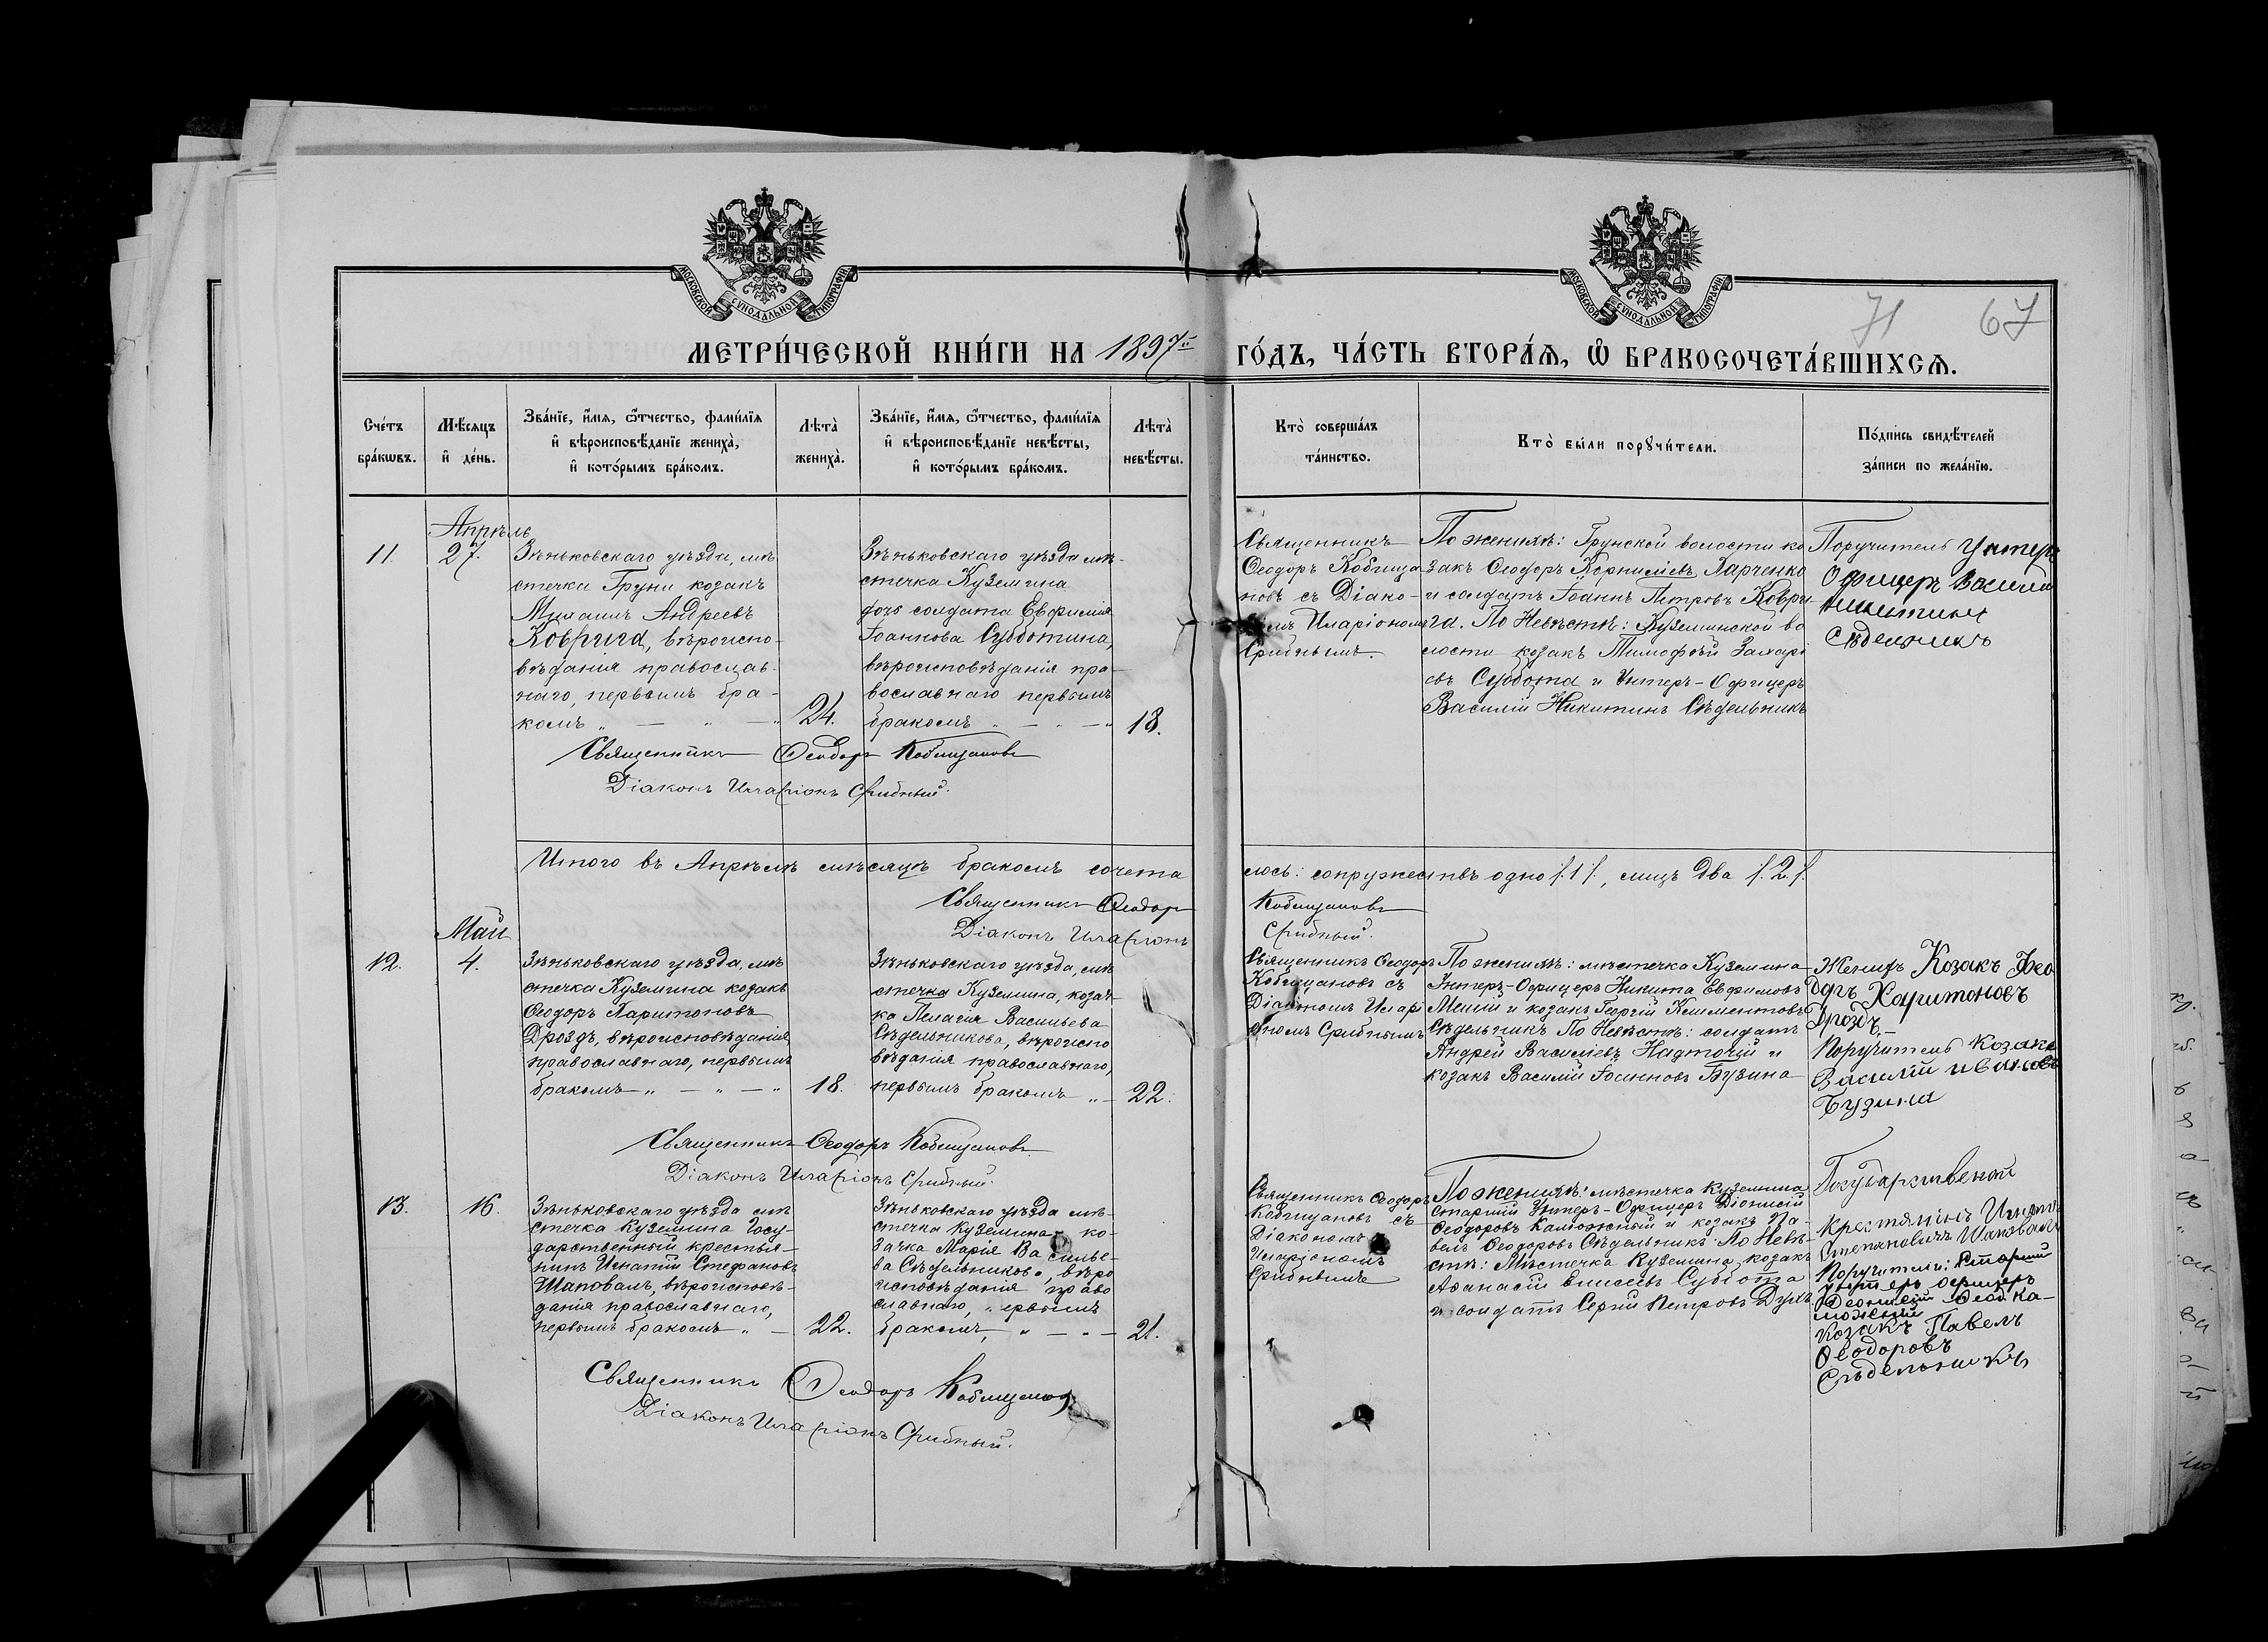 МОСКОВСКОЙ СУНОДАЛЬНОЙ ТИПОГРАФІИ
МОСКОВСКОЙ СУНОДАЛЬНОЙ ТИПОГРАФІИ
71 67
МЕТРИ́ЧЕСКОЙ КНИ́ГИ НА 1897й ГО́ДЪ, ЧА́СТЬ ВТОРА́Я, Ѽ БРАКОСОЧЕТА́ВШИХСЯ.
Сче́тъ
бра́кωвъ.
Мѣ́сяцъ
и҆ де́нь.
Зва́нїе, и҆́мя, ѻ҆́тчество, фами́лїя
и҆ вѣроисповѣ́данїе жениха̀,
и҆ кото́рымъ бра́комъ.
Лѣта̀
жениха̀.
Зва́нїе, и҆́мя, ѻ҆́тчество, фами́лїя
и҆ вѣроисповѣ́данїе невѣ́сты,
и҆ кото́рымъ бра́комъ.
Лѣта̀
невѣ́сты.
Кто̀ соверша́лъ
та́инство.
Кто̀ бы́ли порꙋчи́тели.
По́дпись свидѣ́телей
за́писи по жела́нїю.
11.
Апрѣль
27.
Зѣньковскаго уѣзда, мѣ
стечка Груни козакъ
Михаилъ Андреевъ
Коврига, вѣроиспо-
вѣданія православ-
наго, первымъ бра-
комъ „ — „ — „
24.
Зѣньковскаго уѣзда мѣ-
стечка Куземина
дочь солдата Евфимія
Іоаннова Субботина,
вѣроисповѣданія пра-
вославнаго первымъ
бракомъ „ — „ — „
18.
Священникъ
Ѳеодоръ Кобища
новъ съ Діако-
номъ Иларіономъ
Срибнымъ.
По женихѣ: Грунской волости ко
закъ Ѳеодоръ Корниліевъ Ларченко
и солдатъ Іоаннъ Петровъ Коври
га. По Невѣстѣ: Куземинской во
лости козакъ Тимофѣй Захарі
евъ Суббота и Унтеръ-Офицеръ
Василій Никитинъ Сѣдельникъ
Поручитель Унтеръ
Офицеръ Василий
Никитинъ
Сѣдельникъ
Священникъ Ѳеодоръ Кобищановъ
Діаконъ Иларіонъ Срибный.
Итого въ Апрѣлѣ мѣсяцѣ бракомъ сочета
лось: сопружествъ одно /.1./, лицъ два /.2./.
Священникъ Ѳеодоръ Кобищановъ
Діаконъ Иларіонъ Срибный.
12.
Май
4.
Зѣньковскаго уѣзда, мѣ
стечка Куземина козакъ
Ѳеодоръ Харитоновъ
Дроздъ, вѣроисповѣданія
православнаго, первымъ
бракомъ — „ — „ — „
18.
Зѣньковскаго уѣзда, мѣ
стечка Куземина, козач-
ка Пелагія Васильева
Сѣдельникова, вѣроиспо
вѣданія православнаго,
первымъ бракомъ „ —
22.
Священникъ Ѳеодоръ
Кобищановъ съ
Діакономъ Иларі
ономъ Срибнымъ
По женихѣ: мѣстечка Куземина
Унтеръ-Офицеръ Никита Евфимовъ
и козакъ Георгій Климентовъ
Сѣдельникъ По Невѣстѣ: солдатъ
Андрей Василіевъ Надточій и
козакъ Василій Іоанновъ Бузина
Женихъ Козакъ Фео
доръ Харитоновъ
Дроздъ. —
Поручитель козакъ
Василій Ивановъ
Бузина
Священникъ Ѳеодоръ Кобищановъ
Діаконъ Иларіонъ Срибный.
13.
16.
Зѣньковскаго уѣзда мѣ
стечка Куземина Госу-
дарственный крестья-
нинъ Игнатій Стефановъ
Шаповалъ, вѣроисповѣ-
данія православнаго,
первымъ бракомъ „ —
22.
Зѣньковскаго уѣзда мѣ-
стечка Куземина ко-
зачка Марія Василье-
ва Сѣдельникова, вѣро
исповѣданія право
славнаго, первымъ
бракомъ, „ — „ —
21.
Священникъ Ѳеодоръ
Кобищановъ съ
Діакономъ
Иларіономъ
Срибнымъ
По женихѣ: мѣстечка Куземина
старшій Унтеръ-Офицеръ Діонисій
Ѳеодоровъ Каможный и козакъ Па-
велъ Ѳеодоровъ Сѣдельникъ По Невѣ-
стѣ: Мѣстечка Куземина козакъ
Аѳанасій Елисеевъ Суббота
и солдатъ Сергій Петровъ
Государственой
крестянинъ Игнатъ
Степановичъ Шаповалъ
Поручители: Старший
унтеръ офицеръ
Деонисий Феод. Ка-
можный
козакъ Павелъ
Ѳеодоровъ
Сѣдельникъ
Священникъ Ѳеодоръ Кобищановъ
Діаконъ Иларіонъ Срибный.